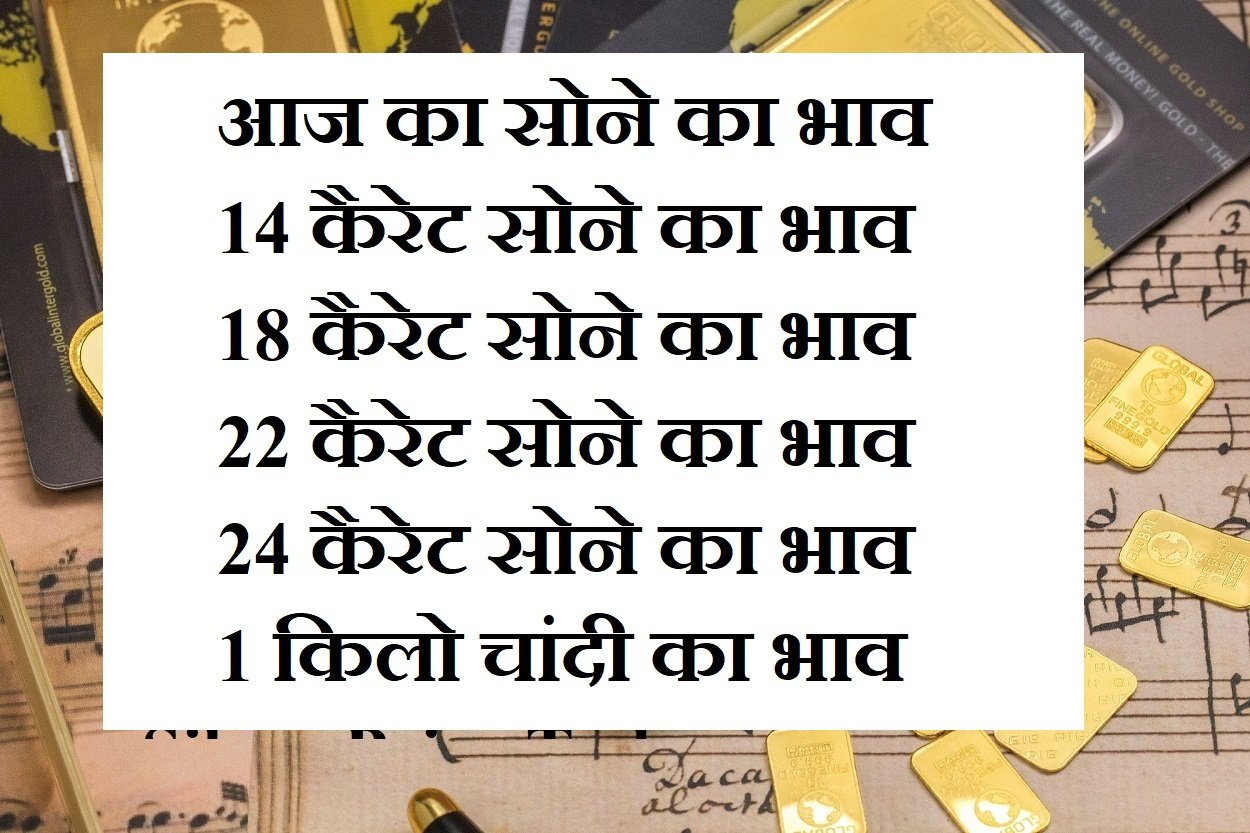 आज का सोने का भाव
14 कैरेट सोने का भाव
18 कैरेट सोने का भाव
22 कैरेट सोने का भाव
24 कैरेट सोने का भाव
1 किलो चांदी का भाव
THE ONLINE GOLD SHOP
THE REAL MONEY! GOLD - THE
• www.globalintergold.com
GLOBAL
1g
FINE GOLD
999.9
GLOBAL
Daca